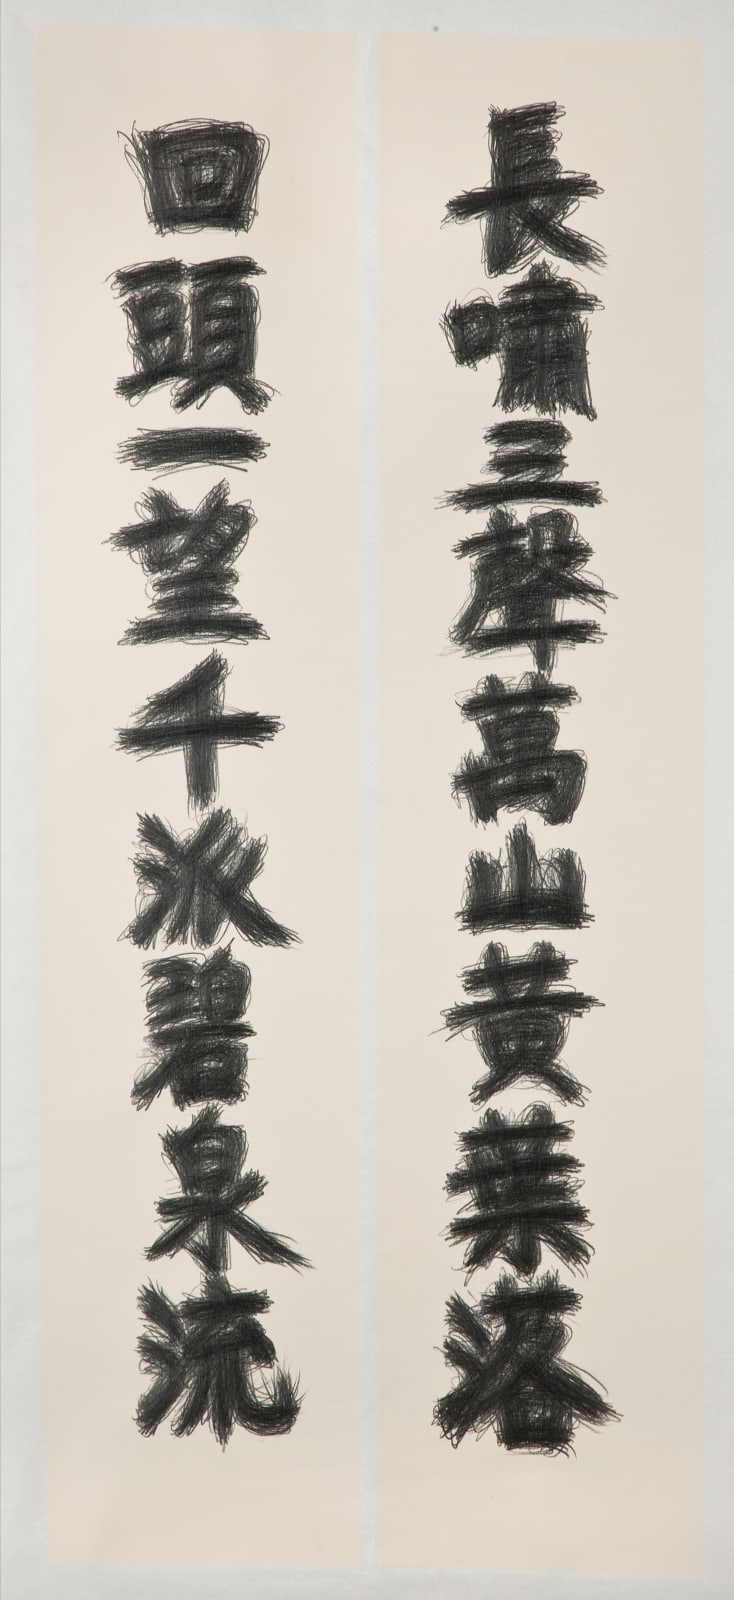 長嘯三聲萬山黃葉落
回頭一望千派碧泉流